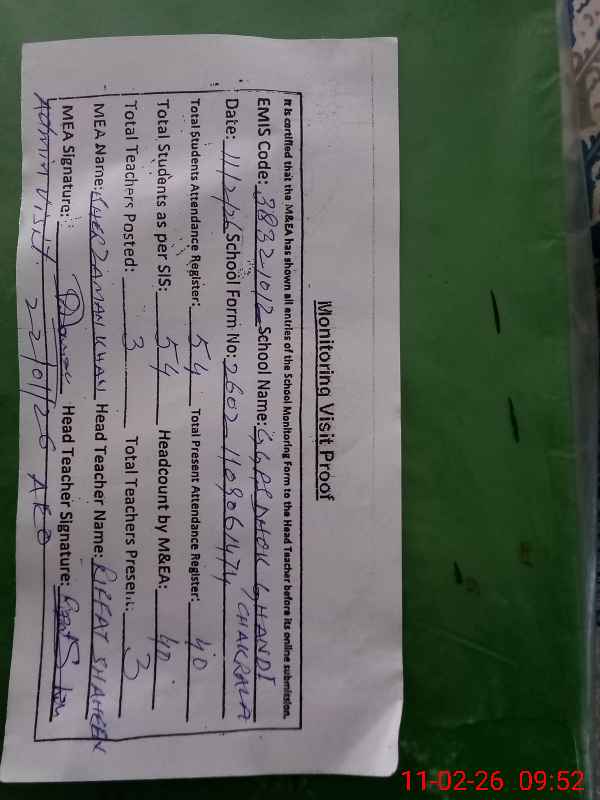 Monitoring Visit Proof
It is certified that the M&EA has shown all entries of the School Monitoring Form to the Head Teacher before its online submission.
EMIS Code: 38321012 School Name: GGPS DHOK GHANDI
/CHAKRALA
Date: 11/2/26 School Form No: 2602 1109061474
Total Students Attendance Register: 54 Total Present Attendance Register: 40
Total Students as per SIS: 54 Headcount by M&EA: 40
Total Teachers Posted: 3 Total Teachers Present: 3
MEA Name: SHER ZAMAN KHAN Head Teacher Name: RIFFAT SHAHEEN
MEA Signature: Head Teacher Signature:
Admin Visit. 22/01/26 AEO
11-02-26 09:52